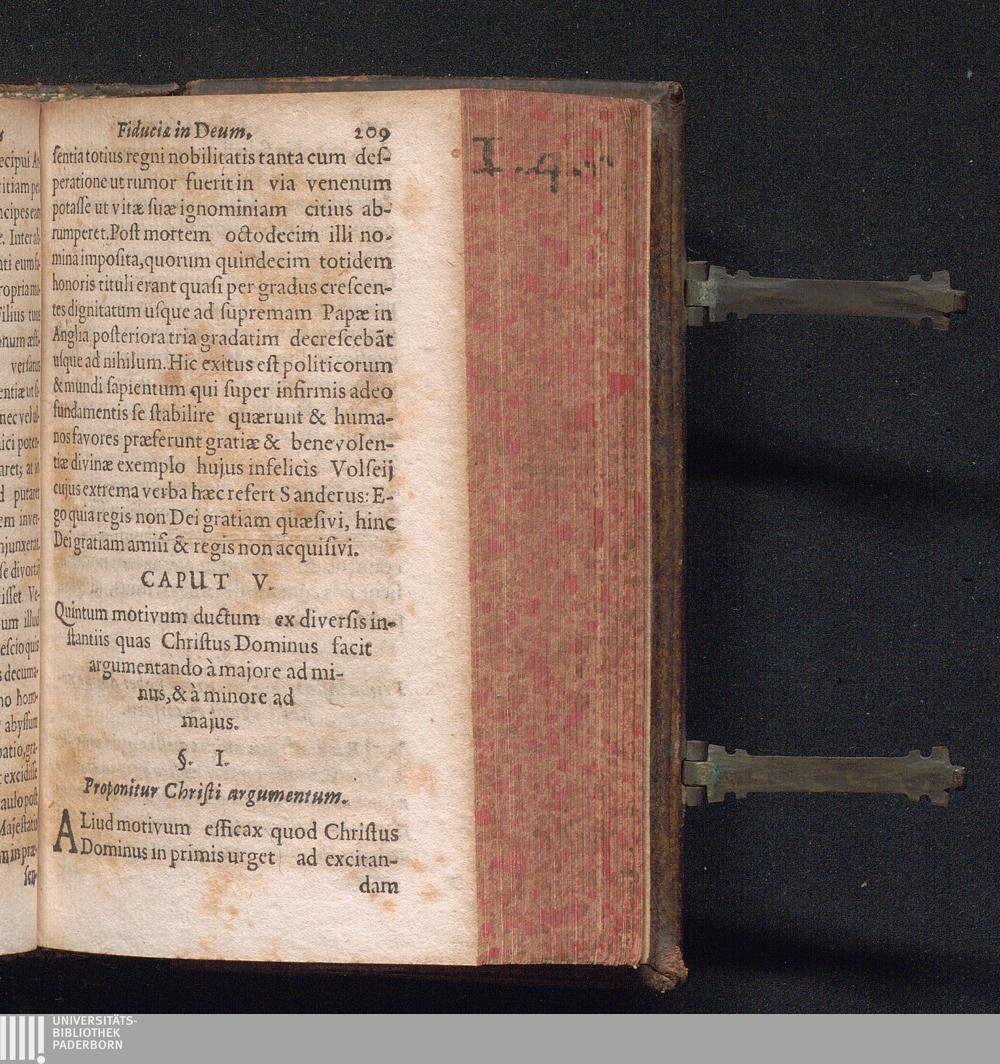 Fiduciæ in Deum. 209
ſentia totius regni nobilitatis tanta cum deſ-
peratione ut rumor fuerit in via venenum
potaſſe ut vitæ ſuæ ignominiam citius ab-
rumperet. Poſt mortem octodecim illi no-
mina impoſita, quorum quindecim totidem
honoris tituli erant quaſi per gradus creſcen-
tes dignitatum uſque ad ſupremam Papæ in
Anglia poſteriora tria gradatim decreſcebāt
uſque ad nihilum. Hic exitus eſt politicorum
& mundi ſapientum qui ſuper infirmis adeo
fundamentis ſe ſtabilire quærunt & huma-
nos favores præferunt gratiæ & benevolen-
tiæ divinæ exemplo hujus infelicis Volſeij
cujus extrema verba hæc refert Sanderus: E-
go quia regis non Dei gratiam quæſivi, hinc
Dei gratiam amiſi & regis non acquiſivi.
CAPUT V.
Quintum motivum ductum ex diverſis in-
ſtantiis quas Chriſtus Dominus facit
argumentando à majore ad mi-
nus, & à minore ad
majus.
§. I.
Proponitur Chriſti argumentum.
ALiud motivum efficax quod Chriſtus
Dominus in primis urget ad excitan-
dam
UNIVERSITÄTS-
BIBLIOTHEK
PADERBORN